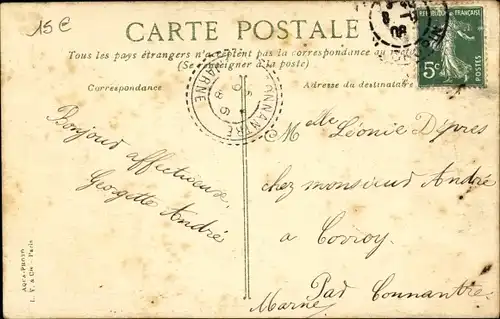 15 €
CARTE POSTALE
Tous les pays étrangers n'acceptent pas la correspondance au
(Se renseigner à la poste)
Correspondance
Adresse du destinataire
REPUBLIQUE FRANÇAISE
5c
POSTES
CONNANTRE
MARNE
Bonjour affectueux,
Georgette André
Melle Léonie Dépres
chez monsieur André
a Corroy
Pad Connantre
Marne
AQUA-PHOTO
L. V. & Cie - Paris